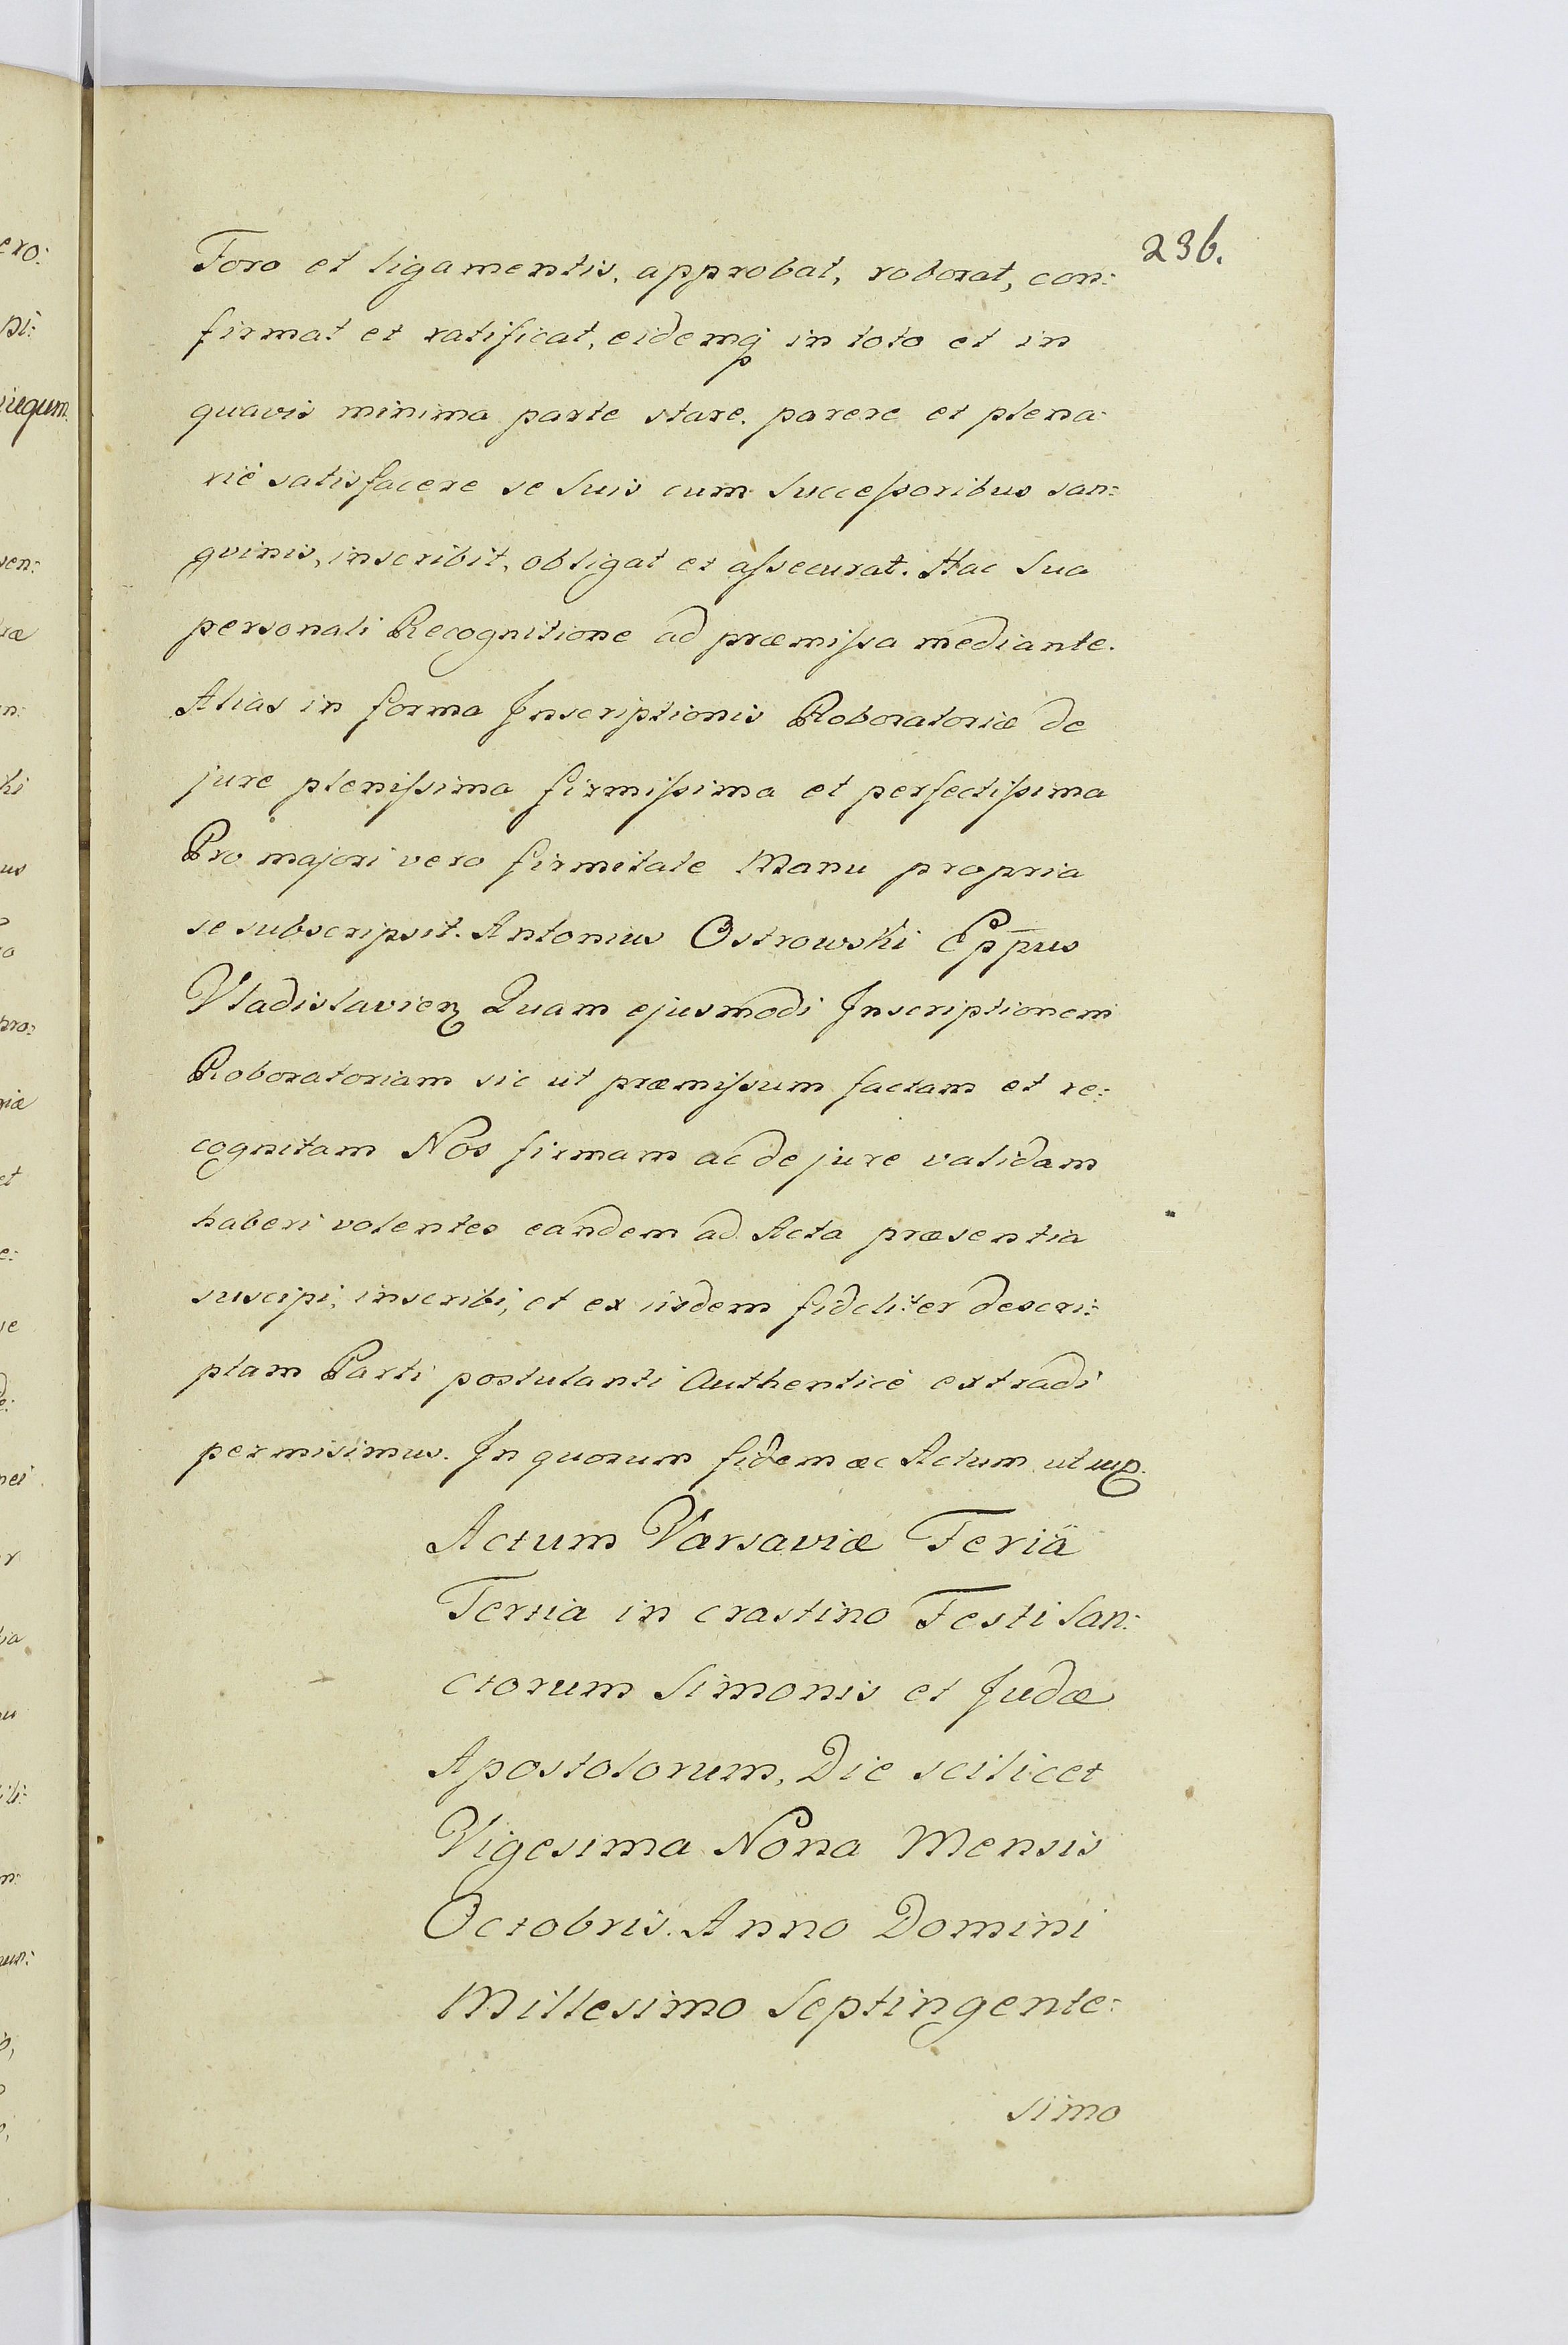 236.
Foro et ligamentis, approbat, roborat, con:
firmat et ratificat, eidemq; in toto et in
quavis minima parte stare, parere et plena
riè satisfacere se suis cum successoribus san:
gvinis, inscribit, obligat et assecurat. Hac Sua
personali Recognitione ad præmissa mediante.
Alias in forma Inscriptionis Roboratoriæ de
jure plenissima firmissima et perfectissima
Pro majori vero firmitate Manu propria
se subscripsit. Antonius Ostrowski Epp̄us
Vladislavien Quam ejusmodi Inscriptionem
Roboratoriam sic ut præmissum factam et re:
cognitam Nos firmam ac de jure validam
haberi volentes eandem ad Acta præsentia
suscipi, inscribi, et ex iisdem fideliter descri:
ptam Parti postulanti Authenticè extradi
permisimus. In quorum fidem &c Actum ut sup.
Actum Varsaviæ Feriä
Tertia in crastino Festi San:
ctorum Simonis et Judæ
Apostolorum, Die scilicet
Vigesima Nona Mensis
Octobris. Anno Domini
Millesimo Septingente:
simo
ero:
pi:
iegum
sen: